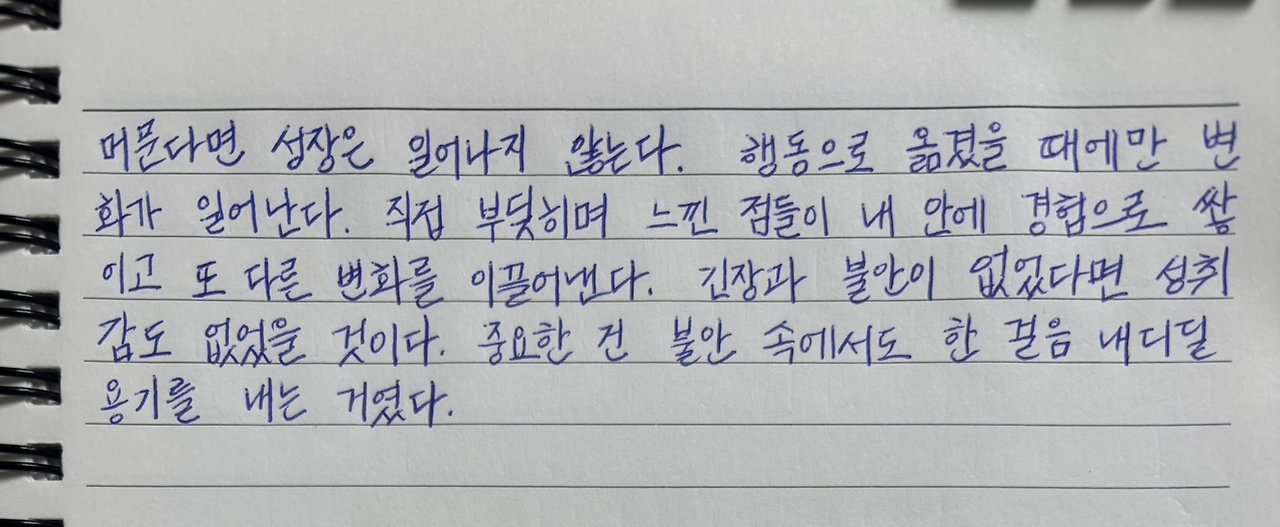 머문다면 성장은 일어나지 않는다. 행동으로 옮겼을 때에만 변
화가 일어난다. 직접 부딪히며 느낀 점들이 내 안에 경험으로 쌓
이고 또 다른 변화를 이끌어낸다. 긴장과 불안이 없었다면 성취
감도 없었을 것이다. 중요한 건 불안 속에서도 한 걸음 내디딜
용기를 내는 거였다.